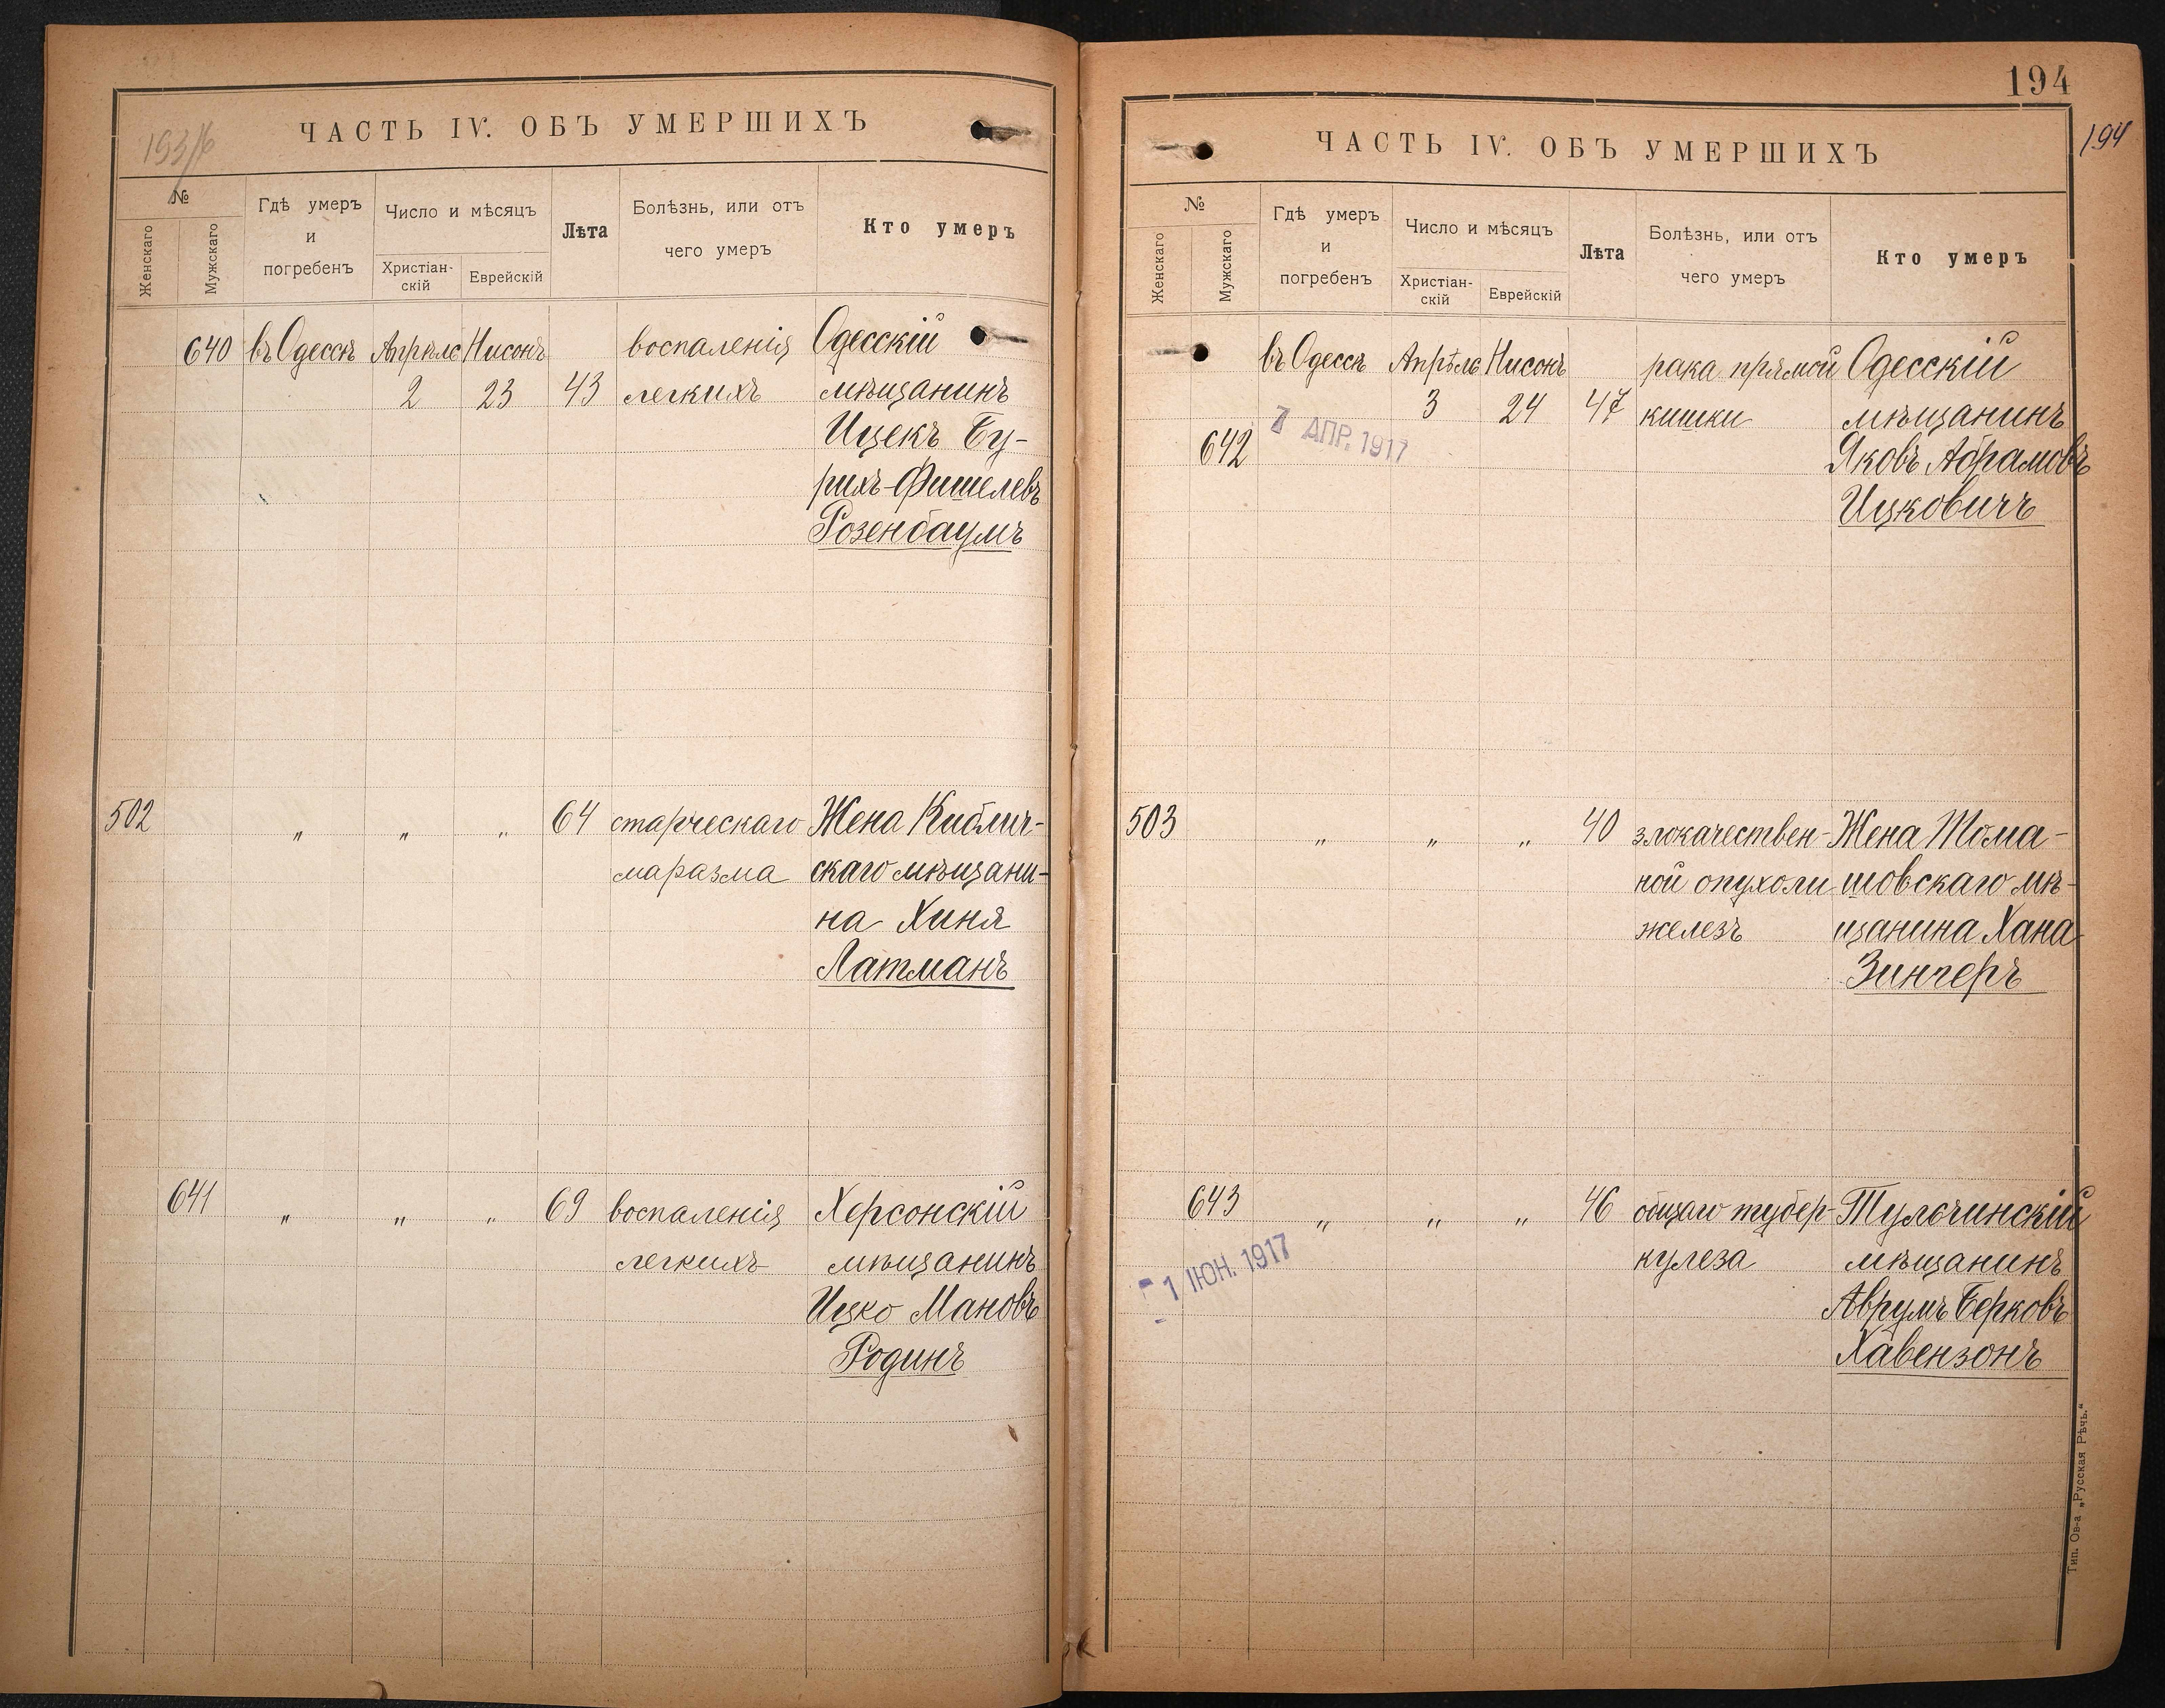 193/б
ЧАСТЬ IV. ОБЪ УМЕРШИХЪ
№
Женскаго
Мужскаго
Гдѣ умеръ
и
погребенъ
Число и мѣсяцъ
Христіан-
скій
Еврейскій
Лѣта
Болѣзнь, или отъ
чего умеръ
Кто умеръ
640 въ Одессѣ Апрѣля Нисонъ воспаленія Одесскій
2 23 43 легкихъ мѣщанинъ
Ицекъ Бу-
рихъ-Фишелевъ
Розенбаумъ
502 " " " 64 старческаго Жена Киблич-
маразма скаго мѣщани-
на Хиня
Латманъ
641 " " " 69 воспаленія Херсонскій
легкихъ мѣщанинъ
Ицко Мановъ
Родинъ
194
194
ЧАСТЬ IV. ОБЪ УМЕРШИХЪ
№
Женскаго
Мужскаго
Гдѣ умеръ
и
погребенъ
Число и мѣсяцъ
Христіан-
скій
Еврейскій
Лѣта
Болѣзнь, или отъ
чего умеръ
Кто умеръ
въ Одессѣ Апрѣля Нисонъ рака прямой Одесскій
3 24 47 кишки мѣщанинъ
7 АПР. 1917
642 Яковъ Абрамовъ
Ицковичъ
503 " " " 40 злокачествен- Жена Тома-
ной опухоли шовскаго мѣ-
железъ щанина Хана
Зингеръ
643 " " " 46 общаго тубер- Тульчинскій
кулеза мѣщанинъ
- 1 ІЮН. 1917
Аврумъ Берковъ
Хавензонъ
Тип. Ов-а „Русская Рѣчь.“